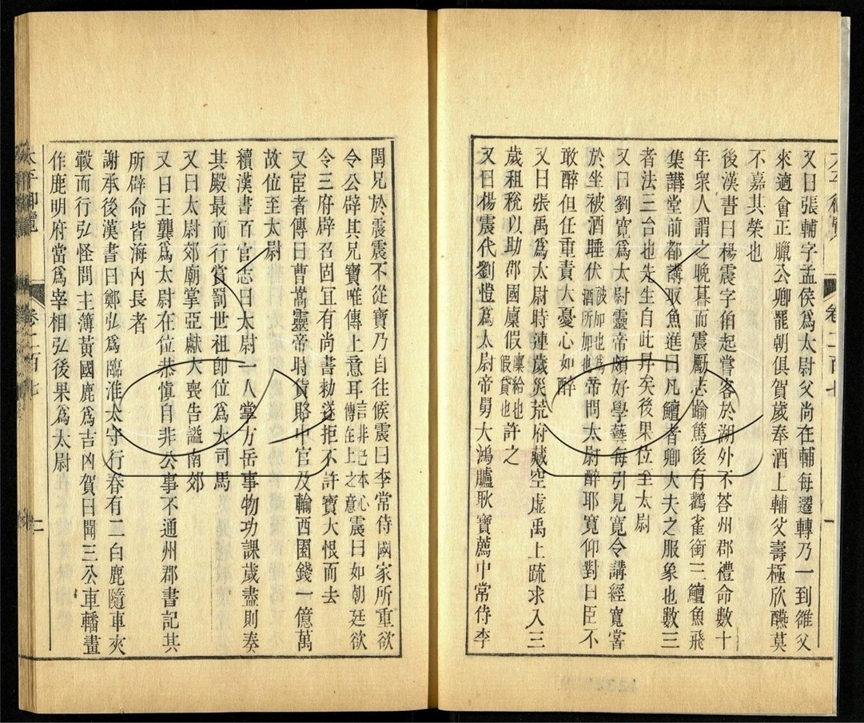 又曰張輔字孟侯爲太尉父尚在輔每遷轉乃一到雒父
來適會正臘公卿罷朝俱賀歲奉酒上輔父壽極欣醼莫
不嘉其榮也
後漢書曰楊震字伯起嘗客於湖外不荅州郡禮命數十
年衆人謂之晚暮而震厲志踰篤後有鸛雀銜三鱣魚飛
集講堂前都講取魚進曰凡鱣者卿大夫之服象也數三
者法三台也先生自此昇矣後果位至太尉
又曰劉寬爲太尉靈帝頗好學藝每引見寬令講經寬嘗
於坐被酒睡伏被加也爲酒所加也帝問太尉醉耶寬仰對曰臣不
敢醉但任重責大憂心如醉
又曰張禹爲太尉時連歲災荒府藏空虛禹上疏求入三
歲租稅以助郡國稟假稟給也假貸也許之
又曰楊震代劉愷爲太尉帝舅大鴻臚耿寶薦中常侍李
閏兄於震震不從寶乃自往候震曰李常侍國家所重欲
令公辟其兄寶唯傳上意耳言非己本心傳在上之意震曰如朝廷欲
令三府辟召固宜有尚書勑遂拒不許寶大恨而去
又宦者傳曰曹嵩靈帝時貨賂中官及輸西園錢一億萬
故位至太尉
續漢書百官志曰太尉一人掌方岳事物功課歲盡則奏
其殿最而行賞罰世祖卽位爲大司馬
又曰太尉郊廟掌亞獻大喪告謚南郊
又曰王龔爲太尉在位恭慎自非公事不通州郡書記其
所辟命皆海內長者
謝承後漢書曰鄭弘爲臨淮太守行春有二白鹿隨車夾
轂而行弘怪問主簿黃國鹿爲吉凶賀曰聞三公車轓畫
作鹿明府當爲宰相弘後果爲太尉
太平御覽
卷二百七